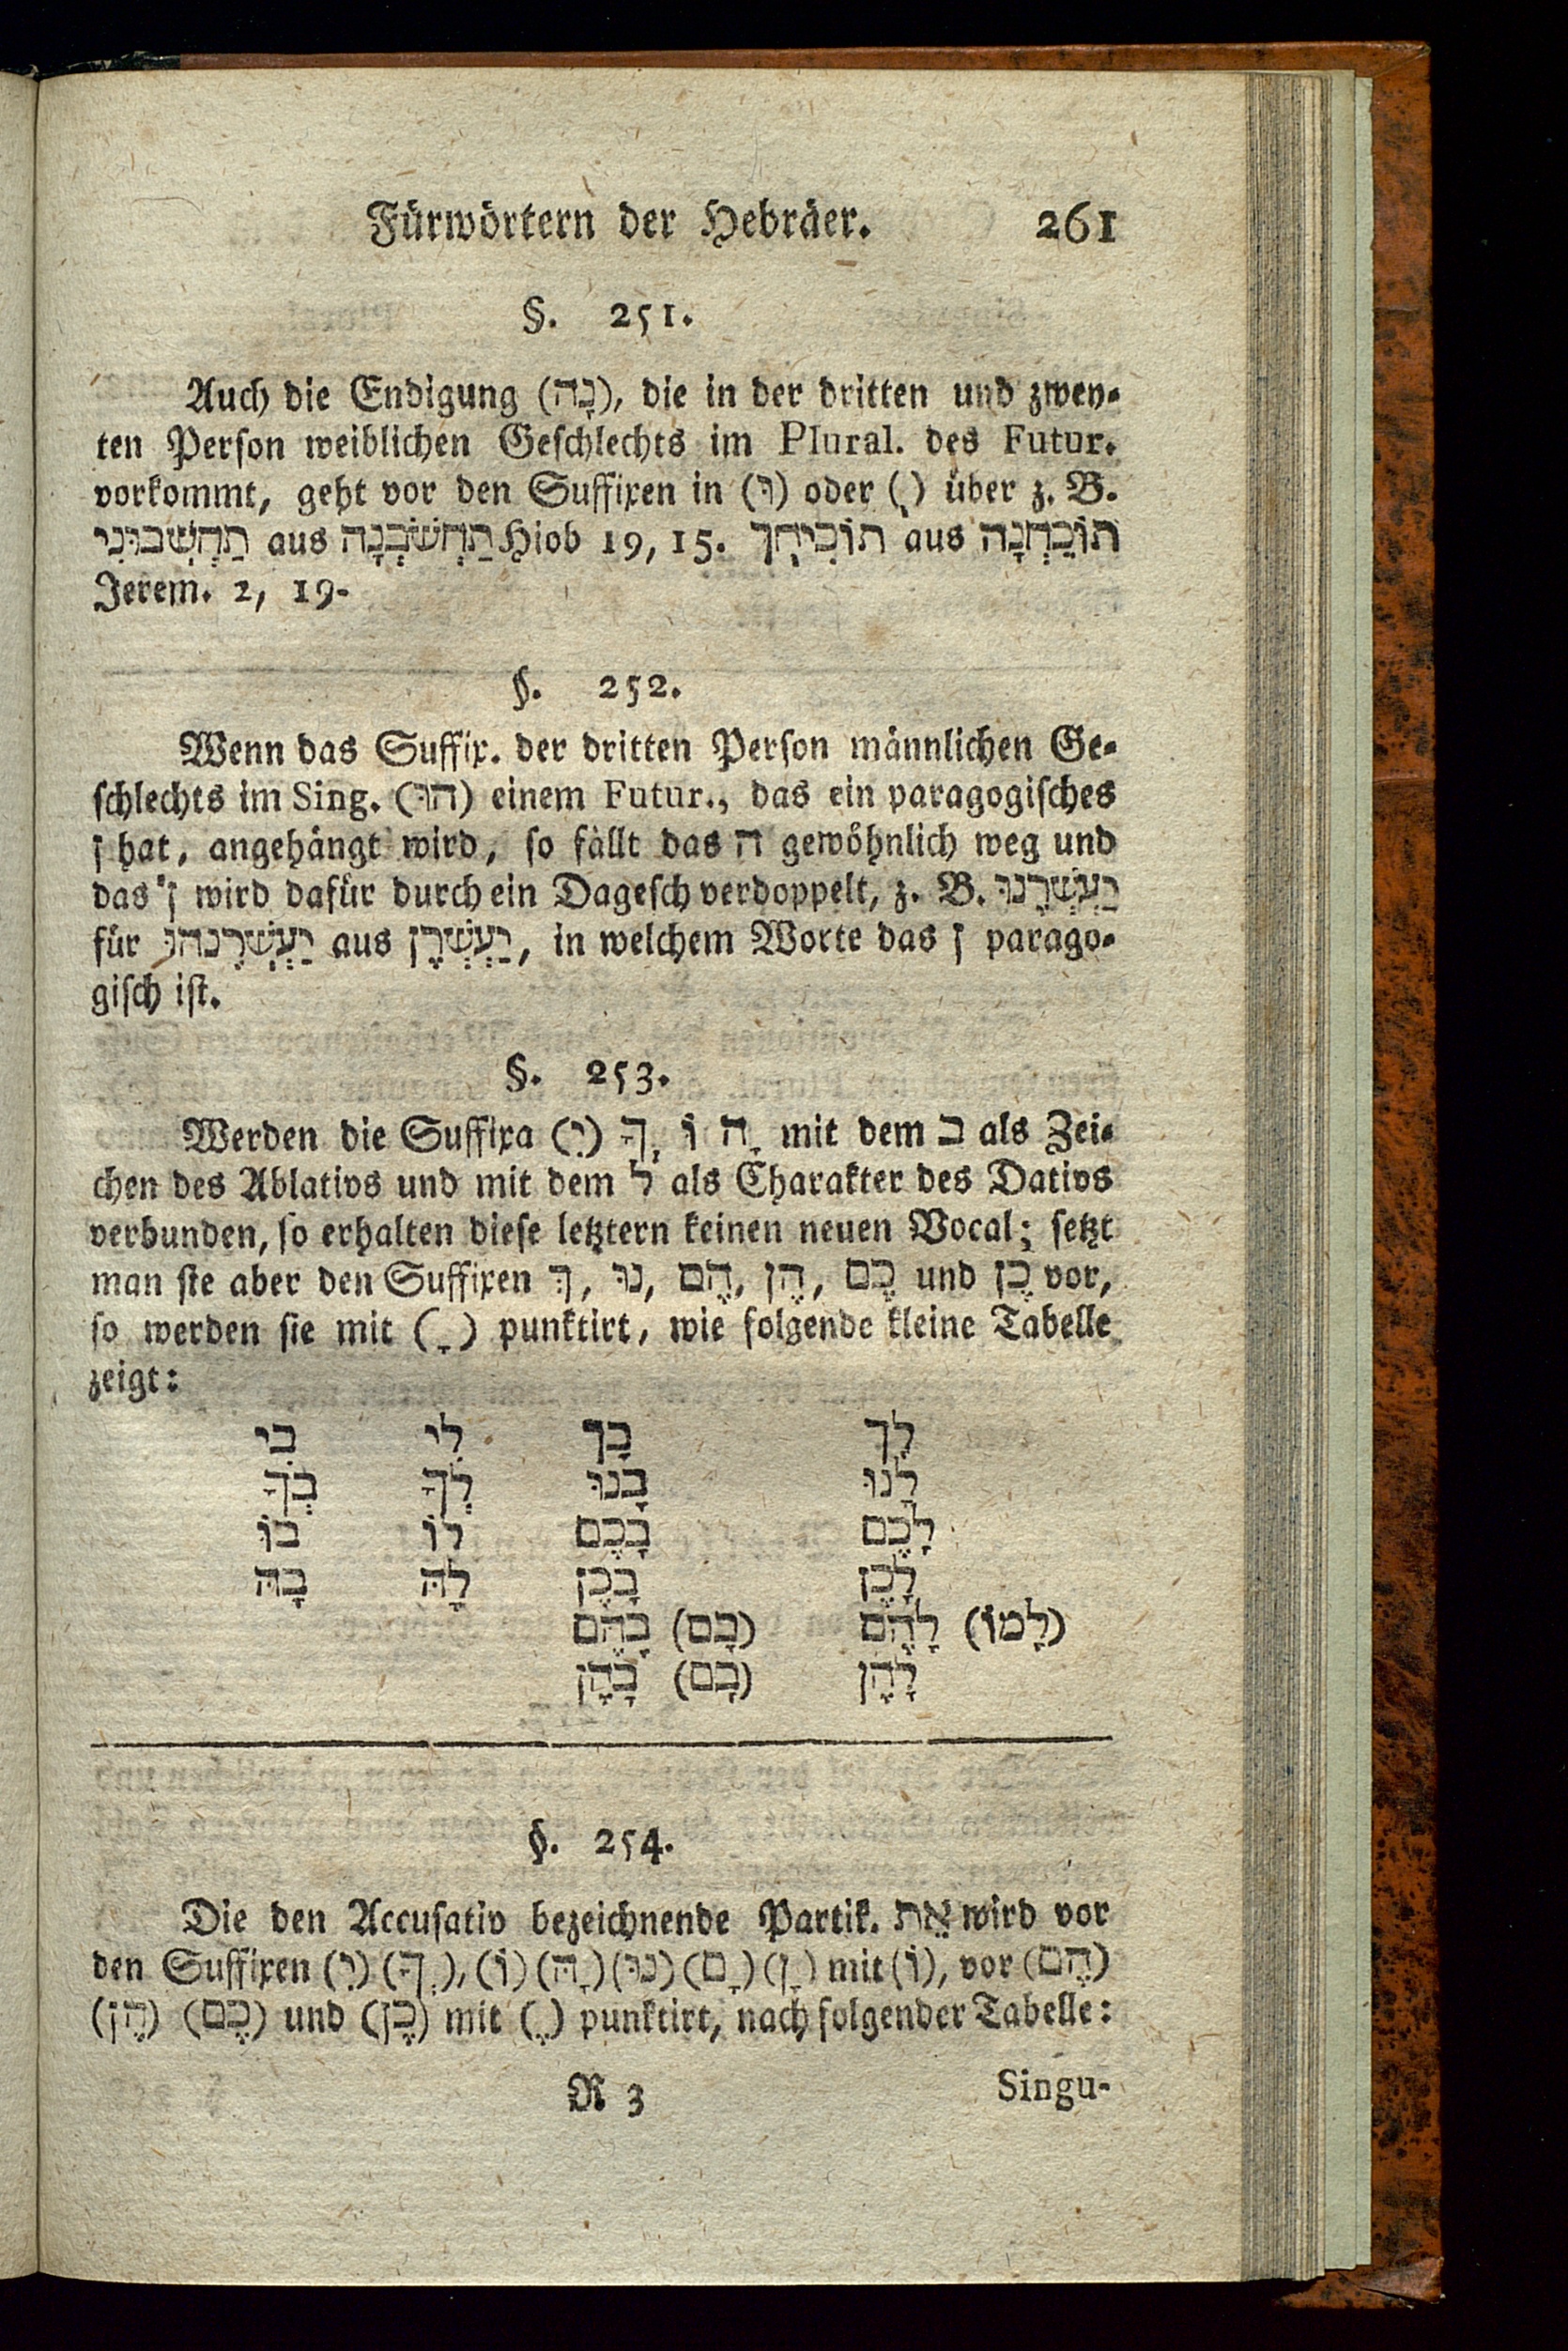 Fürwörtern der Hebräer. 261
§. 251.
Auch die Endigung (נָה), die in der dritten und zwey-
ten Person weiblichen Geschlechts im Plural. des Futur.
vorkommt, geht vor den Suffixen in (וּ) oder ( ֻ) über z. B.
תַּחְשְׁבוּנִי aus תַּחְשֹׁבְנָה Hiob 19, 15. תוֹכִיחֻךְ aus תּוֹכַחְנָה
Jerem. 2, 19.
§. 252.
Wenn das Suffix. der dritten Person männlichen Ge-
schlechts im Sing. (הוּ) einem Futur., das ein paragogisches
ן hat, angehängt wird, so fällt das ה gewöhnlich weg und
das ן wird dafür durch ein Dagesch verdoppelt, z. B. יַעְשְׁרֶנּוּ
für יַעְשְׁרֶנהוּ aus יַעְשְׁרֶן, in welchem Worte das ן parago-
gisch ist.
§. 253.
Werden die Suffixa (ִי) ְךָ וֹ ָה mit dem ב als Zei-
chen des Ablativs und mit dem ל als Charakter des Dativs
verbunden, so erhalten diese letztern keinen neuen Vocal; setzt
man sie aber den Suffixen ךְ, נוּ, הֶם, הֶן, כֶם und כֶן vor,
so werden sie mit ( ָ) punktirt, wie folgende kleine Tabelle
zeigt:
בִי לִי בָךְ לָךְ
בְךָ לְךָ בָנוּ לָנוּ
בוֹ לוֹ בָכֶם לָכֶם
בָהּ לָהּ בָכֶן לָכֶן
בָהֶם (בָם) לָהֶם (לָמוֹ)
בָהֶן (בָם) לָהֶן
§. 254.
Die den Accusativ bezeichnende Partik. אֵת wird vor
den Suffixen (ִי) (ְךָ), (וֹ) (ָהּ) (נוּ) (ָם) (ָן) mit (וֹ), vor (הֶם)
(הֶן) (כֶם) und (כֶן) mit ( ֶ) punktirt, nach folgender Tabelle:
R 3 Singu-